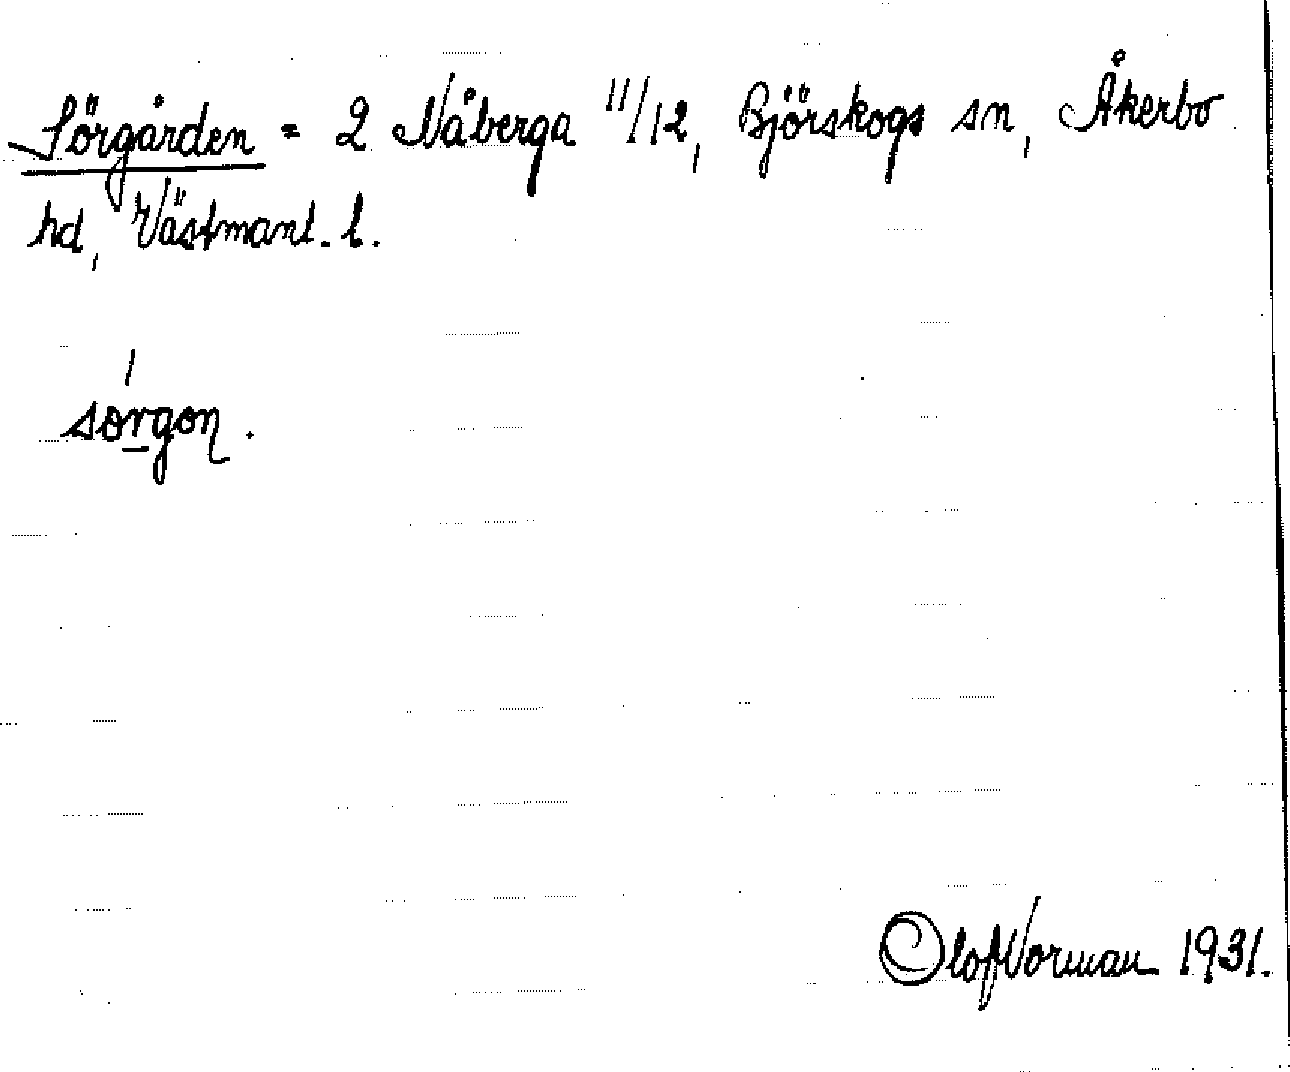 Sörgården = 2 Nåberga 11/12, Björskogs sn, Åkerbo
hd, Västmanl. l.
sörgon.
Olof Norman 1931.